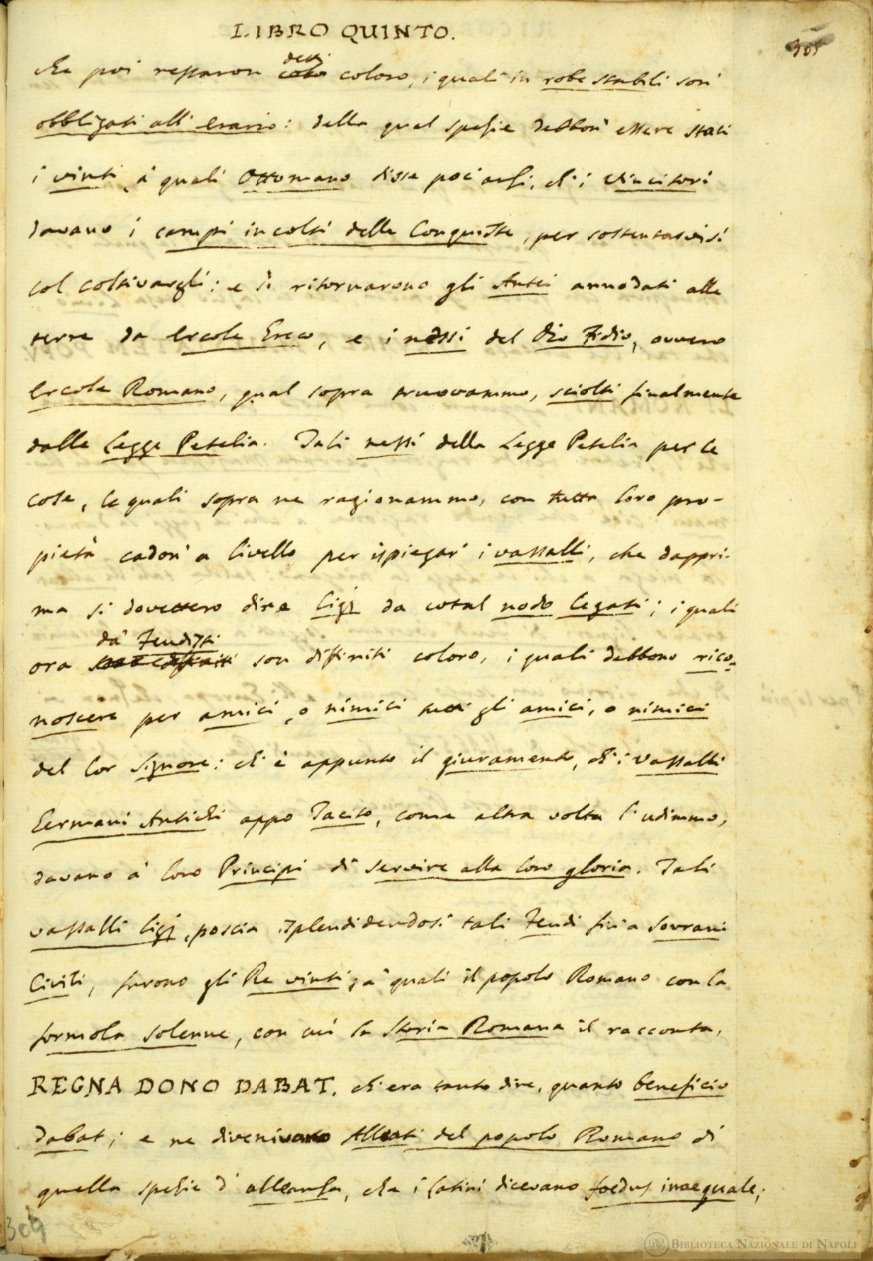 LIBRO QUINTO.
305
che poi restaron detti coloro, i quali in robe stabili son'
obbligati all' Erario: della qual spezie debbon' essere stati
i vinti, a' quali Ottomano disse poc'anzi, ch' i vincitori
davano i campi incolti delle Conquiste, per sostentarvisi
col coltivargli: e si ritornarono gli Antei annodati alle
terre da Ercole Greco, e i nessi del Dio Fidio, ovvero
Ercole Romano, qual sopra truovammo, sciolti finalmente
dalla Legge Petelia. Tali nessi della Legge Petelia per le
cose, le quali sopra ne ragionammo, con tutta loro pro-
pietà cadon' a livello per ispiegar' i vassalli, che dappri-
ma si dovettero dire ligj da cotal nodo legati; i quali
ora da' Feudisti son diffiniti coloro, i quali debbono rico-
noscere per amici, o nimici tutti gli amici, o nimici
del lor Signore: ch' è appunto il giuramento, ch' i vassalli
Germani Antichi appo Tacito, come altra volta l' udimmo,
davano a' loro Principi di servire alla loro gloria. Tali
vassalli ligj, poscia, isplendidendosi tali Feudi fin' a Sovrani
Civili, furono gli Re vinti; a' quali il popolo Romano con la
formola solenne, con cui la Storia Romana il racconta,
REGNA DONO DABAT, ch' era tanto dire, quanto beneficio
dabat; e ne divenivano Alleati del popolo Romano di
quella spezie d' alleanza, che i latini dicevano foedus inaequale;
309
BIBLIOTECA NAZIONALE DI NAPOLI